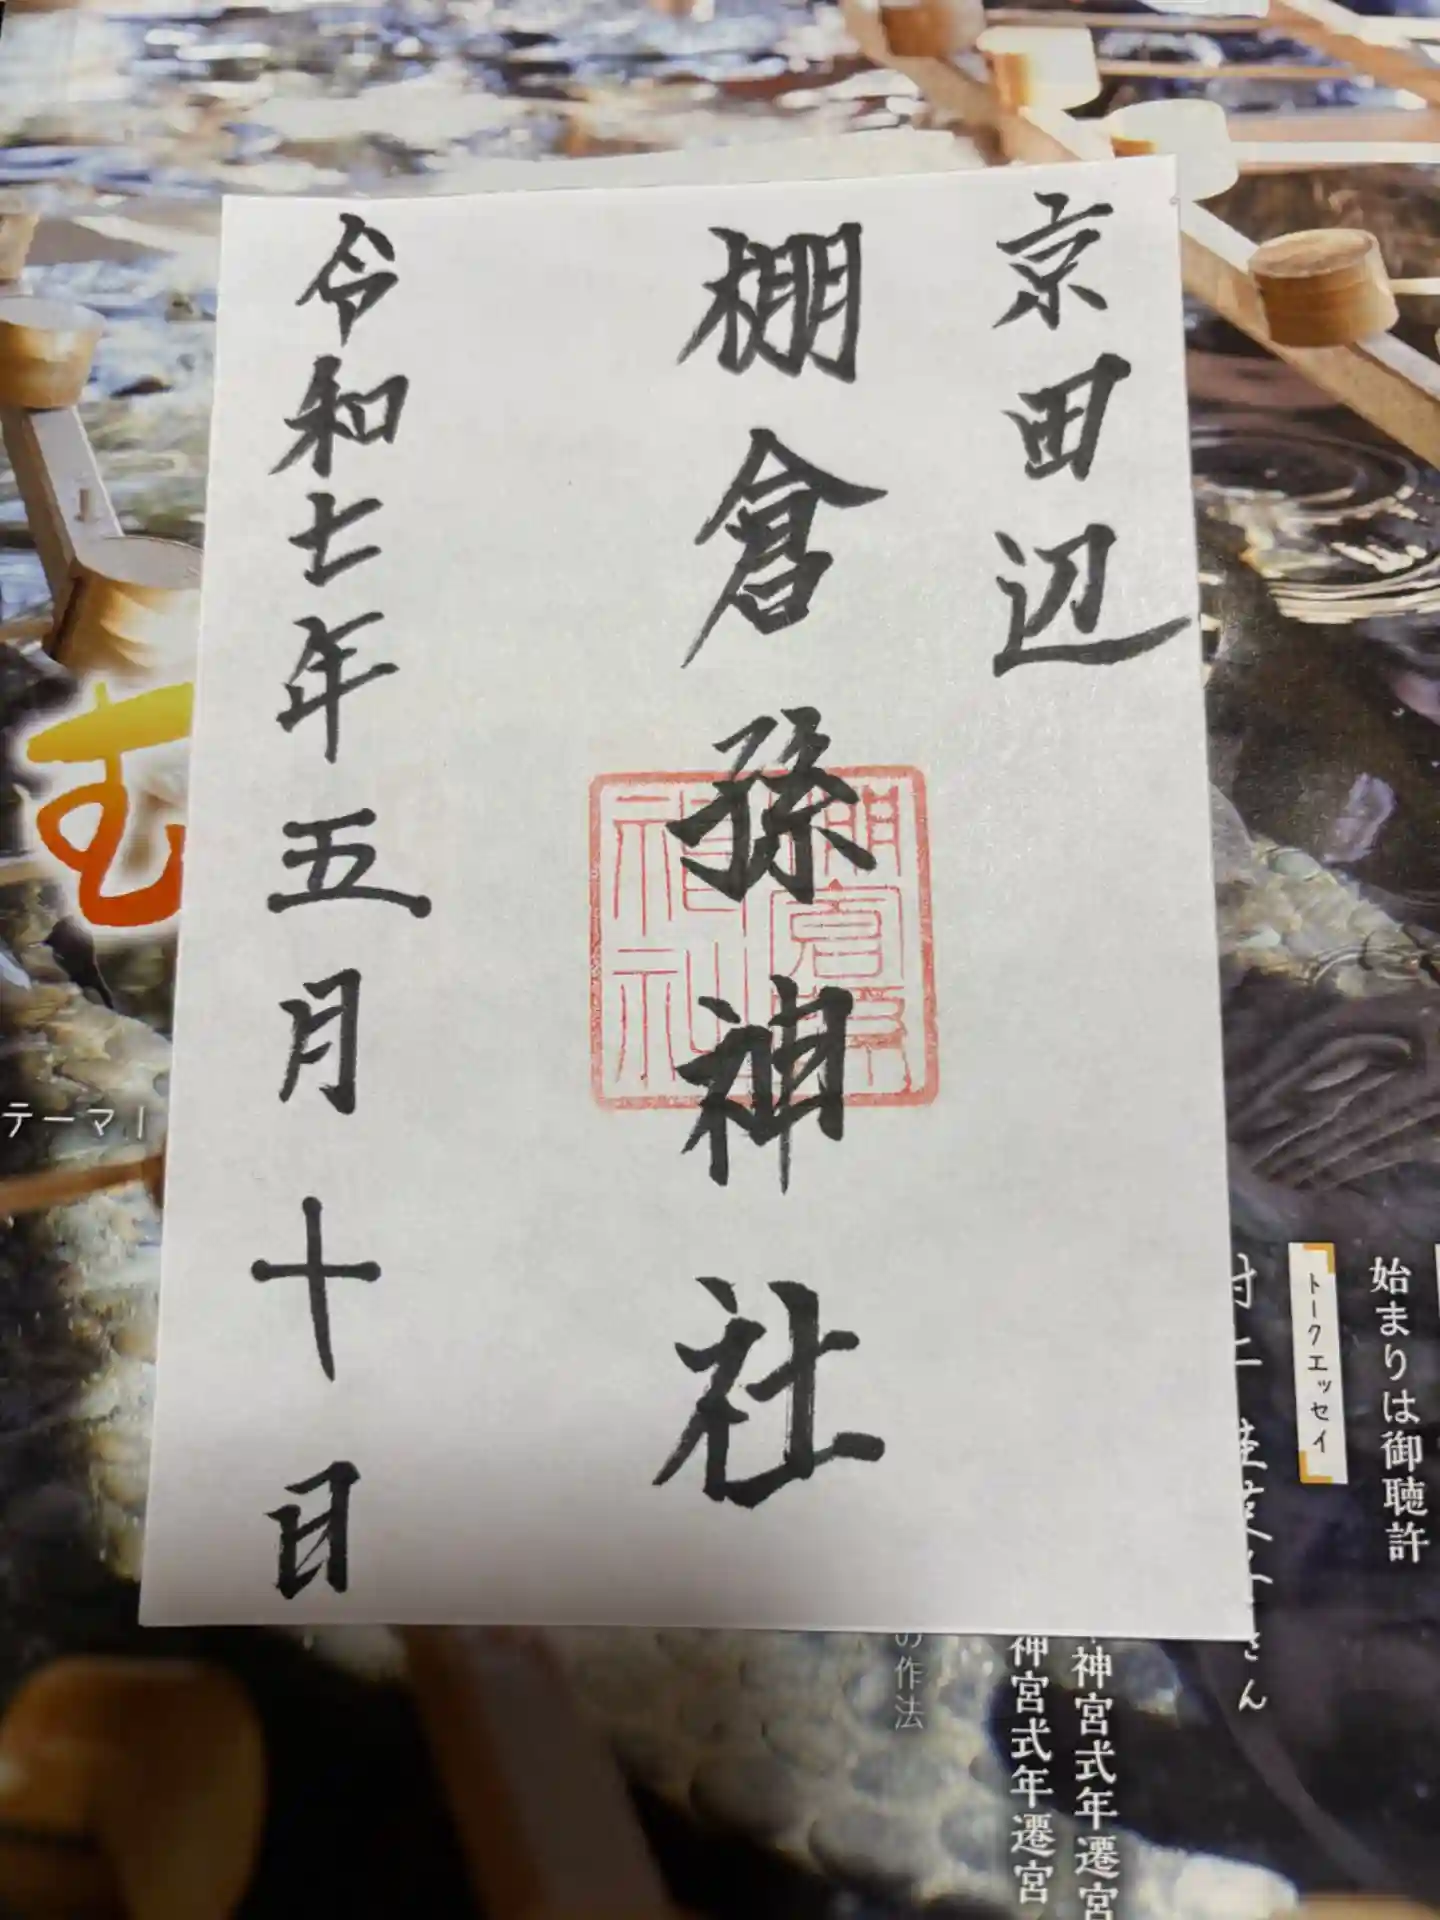 京田辺
棚倉孫神社
令和七年五月十日
む
テーマ1
始まりは御聴許
トークエッセイ
さん
神宮式年遷宮
神宮式年遷宮
の作法